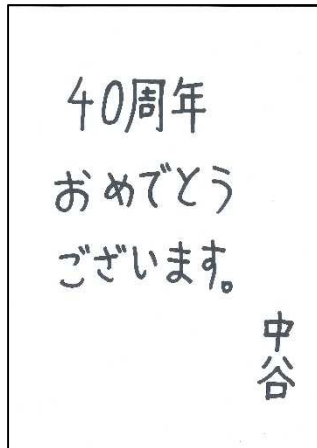 40周年
おめでとう
ございます。
中谷